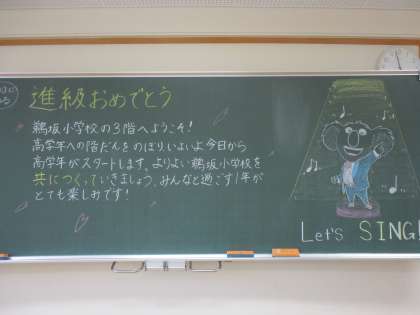 進級おめでとう
鵜坂小学校の3階へようこそ!
高学年への階だんをのぼり、いよいよ今日から
高学年がスタートします。よりよい鵜坂小学校を
共につくっていきましょう。みんなと過ごす1年が
とても楽しみです!
Let's SING!